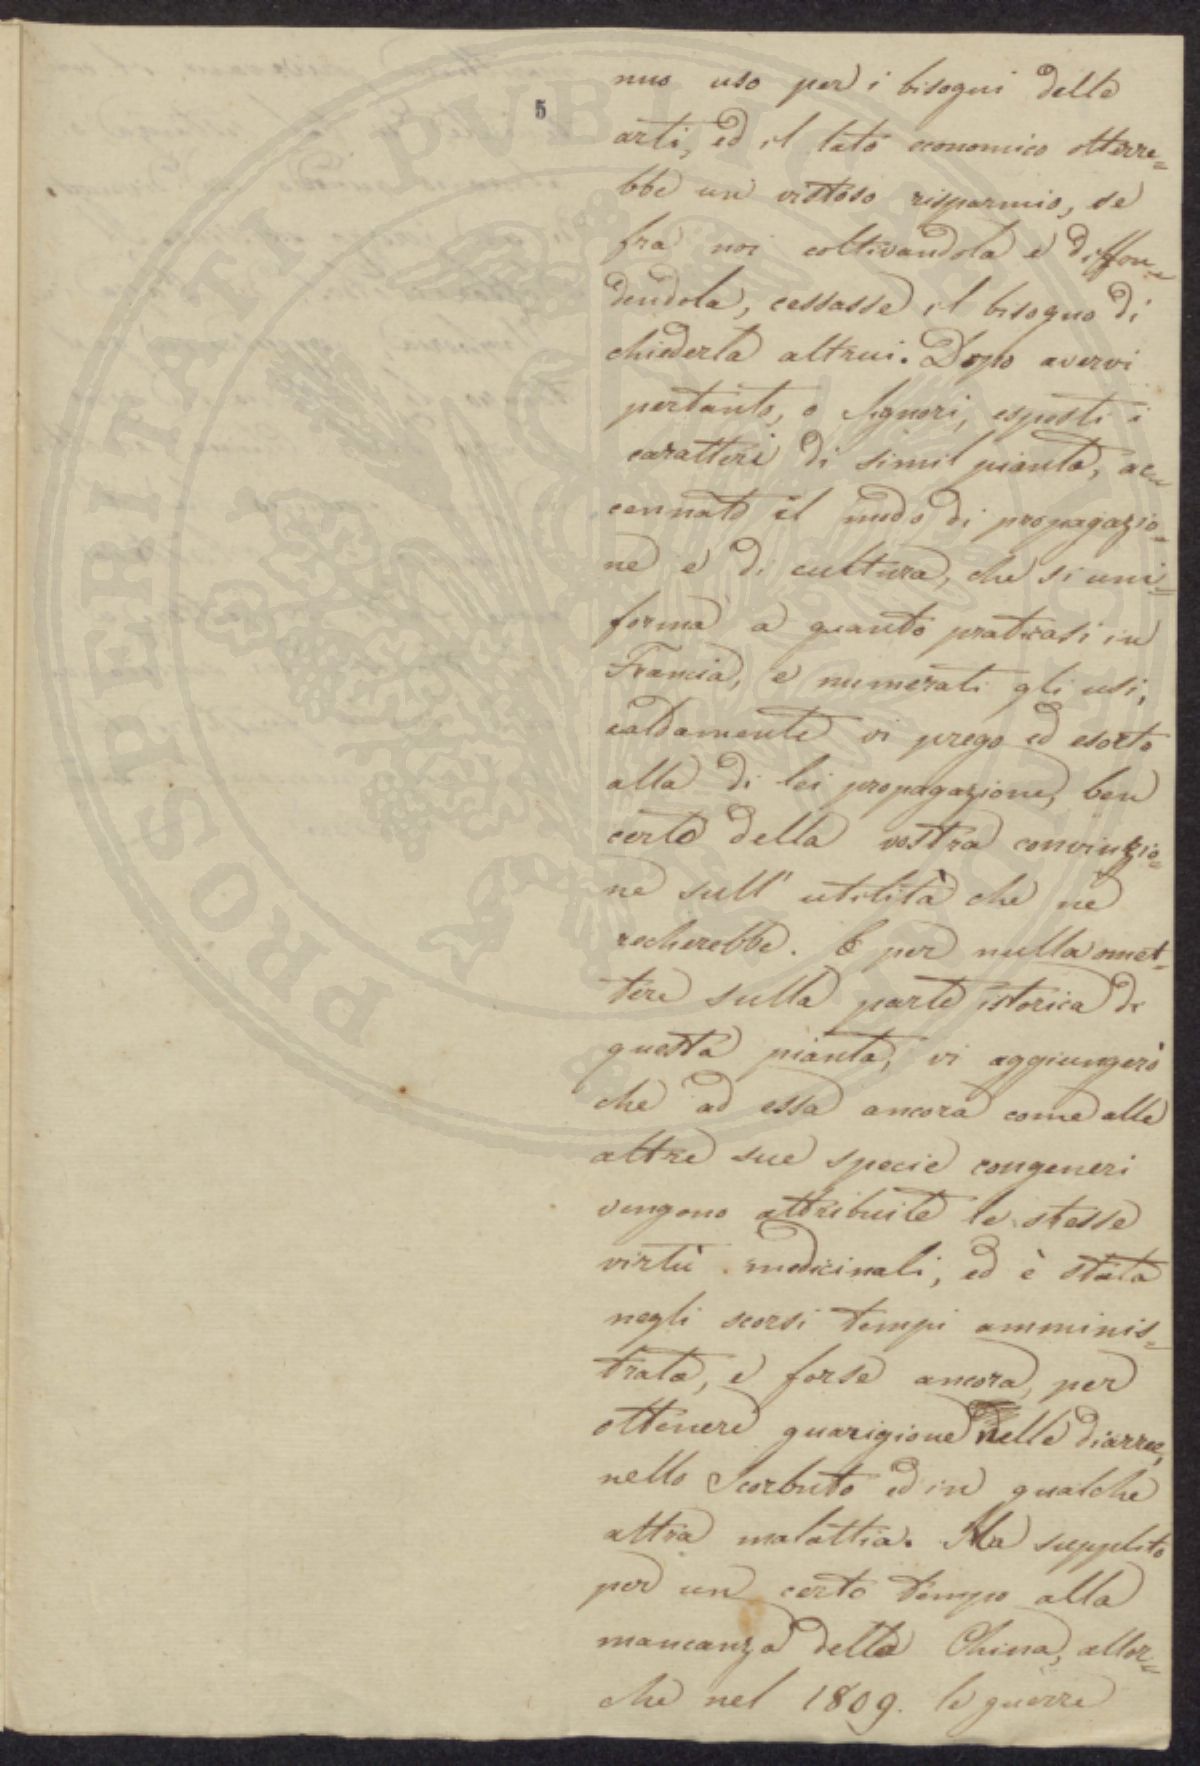 5
nuo uso per i bisogni delle
arti, ed il lato economico otterre=
bbe un vistoso risparmio, se
fra noi coltivandola e diffon=
dendola, cessasse il bisogno di
chiederla altrui. Dopo avervi
pertanto, o Signori, esposti i
caratteri di simil pianta, ac=
cennato il modo di propagazio=
ne e di cultura, che si uni=
forma a quanto praticasi in
Francia, e numerati gli usi,
caldamente vi prego ed esorto
alla di lei propagazione, ben
certo della vostra convinzio=
ne sull' utilità che ne
recherebbe. E per nulla omet=
tere sulla parte istorica di
questa pianta, vi aggiungerò
che ad essa ancora come alle
altre sue specie congeneri
vengono attribuite le stesse
virtù medicinali, ed è stata
negli scorsi tempi amminis=
trata, e forse ancora, per
ottenere guarigione nelle diarree,
nello Scorbuto ed in qualche
altra malattia. Ha supplito
per un certo tempo alla
mancanza della China, allor=
che nel 1809. le guerre
PROSPERITATI PUBLICAE